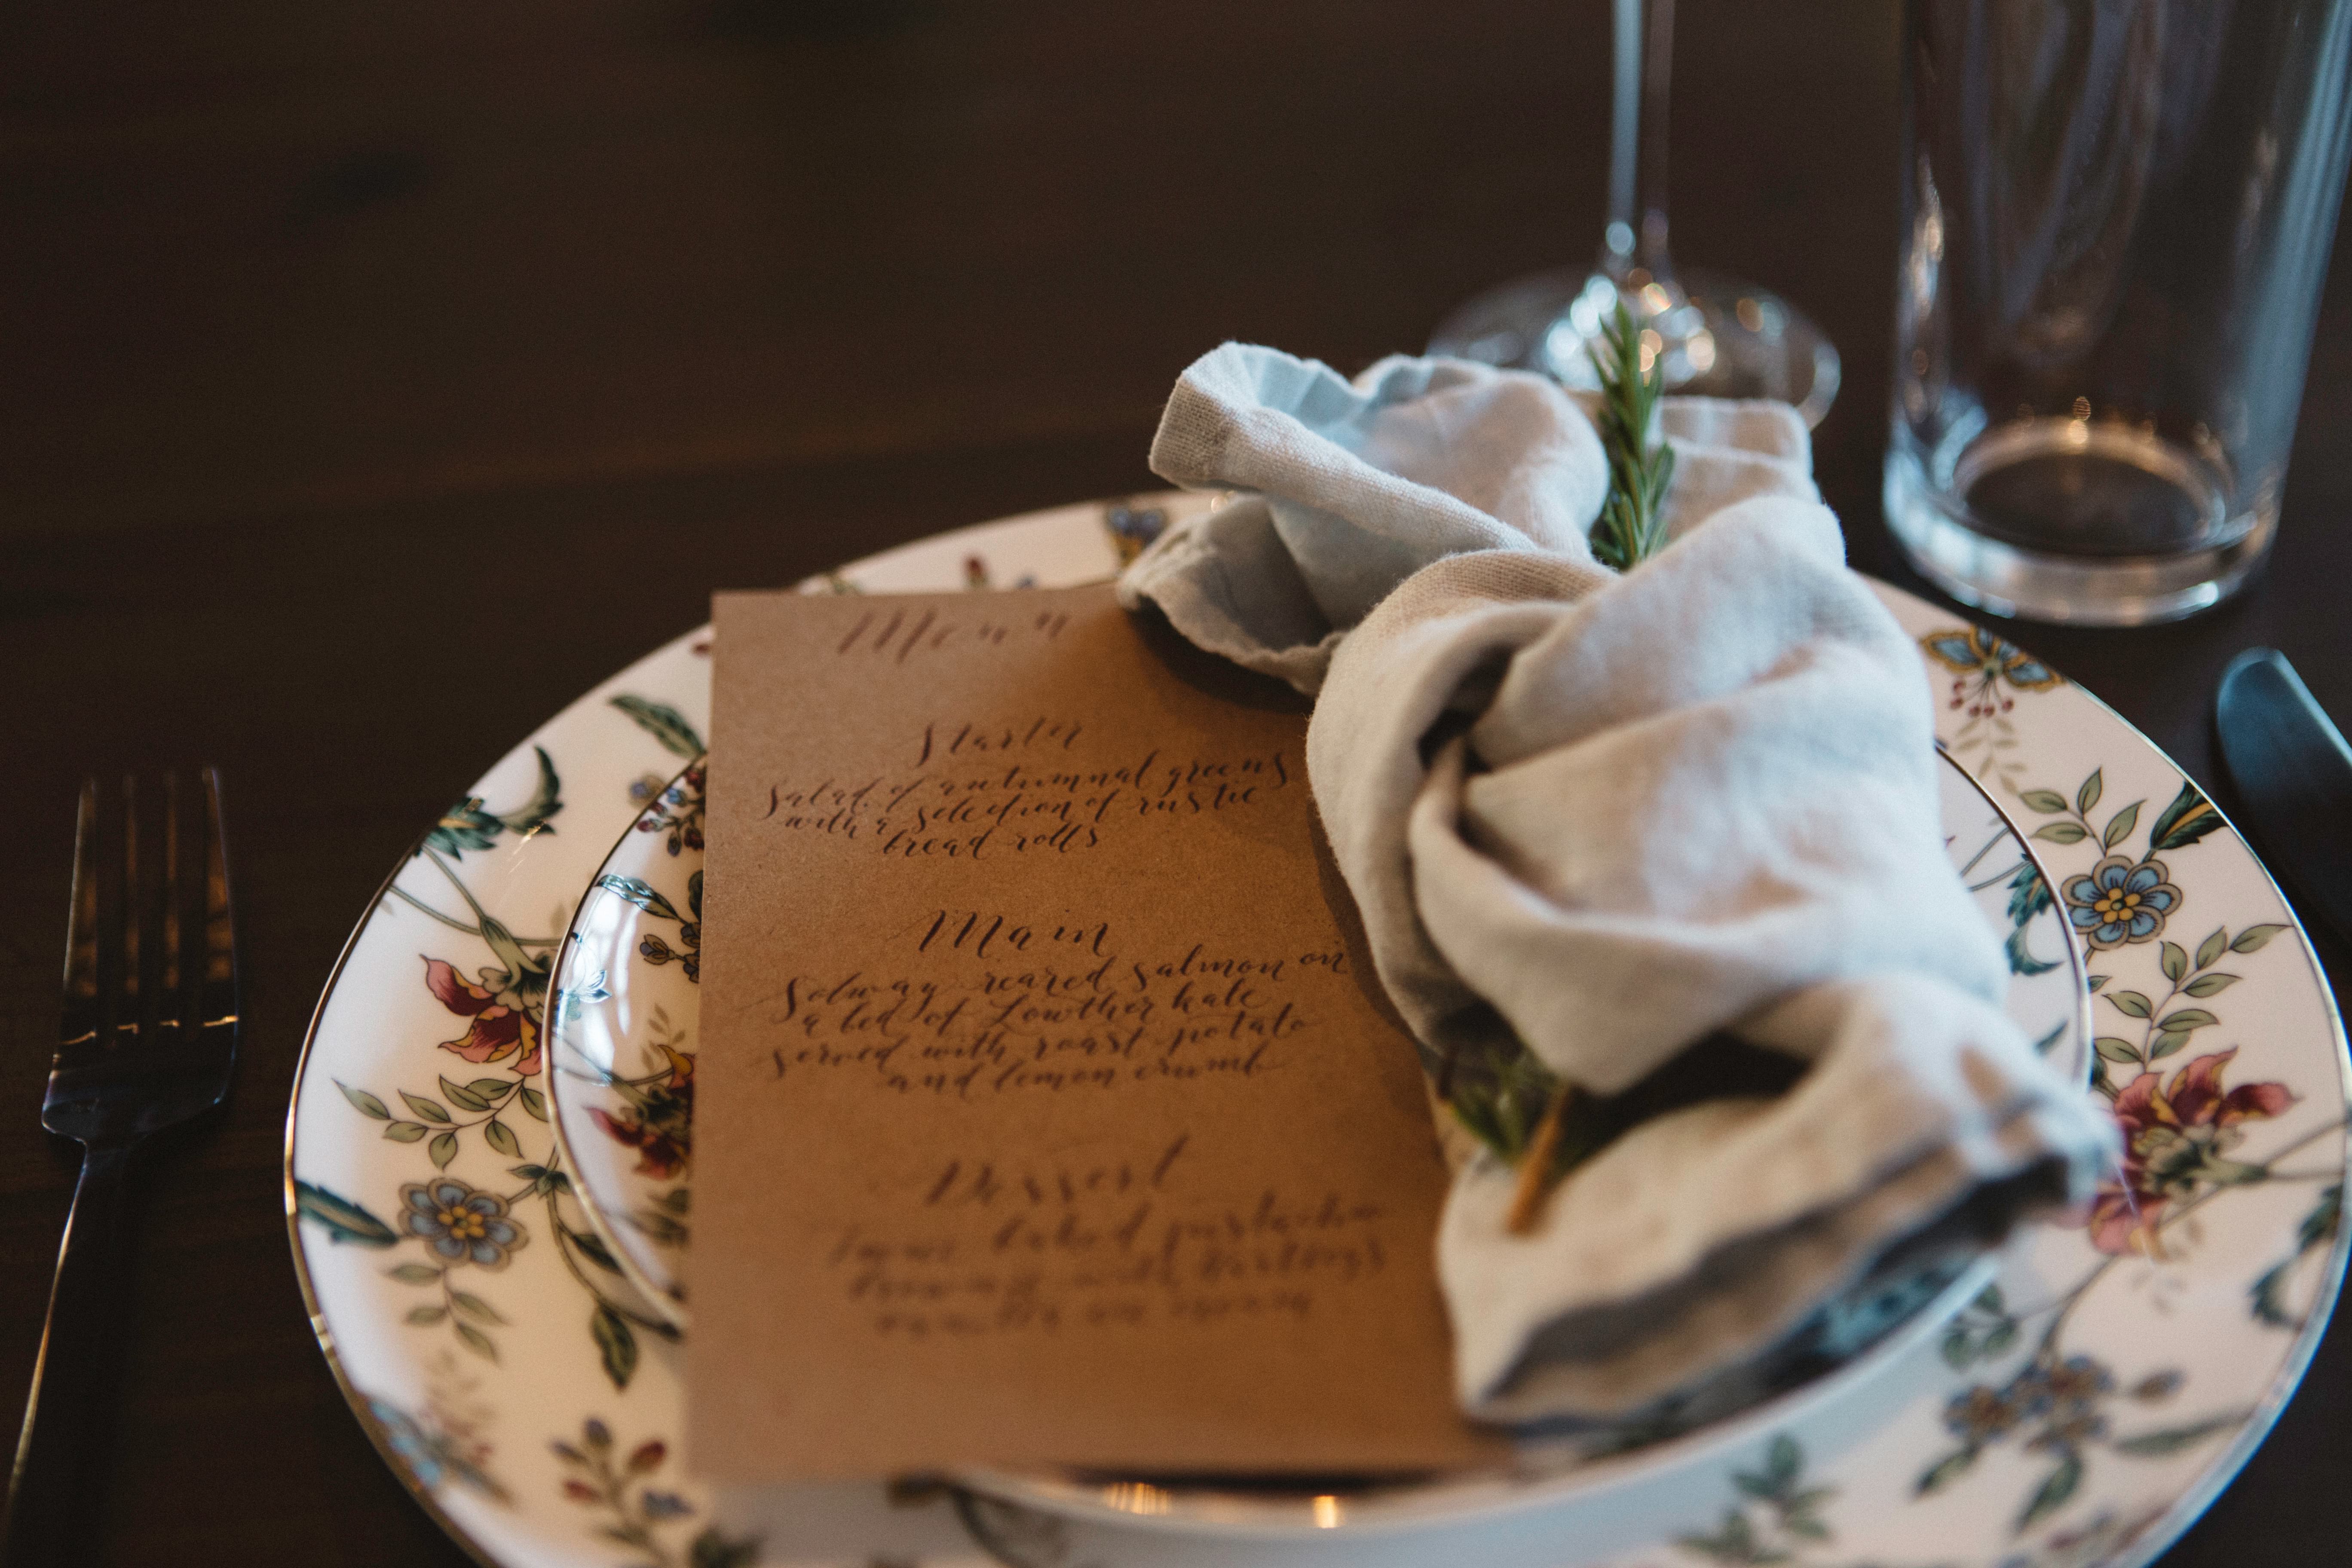 Menu
Starter
Salad of autumnal greens
with a selection of rustic
bread rolls
Main
Solway reared salmon on
a bed of Lowther kale
served with roast potato
and lemon crumb
Dessert
baked
with